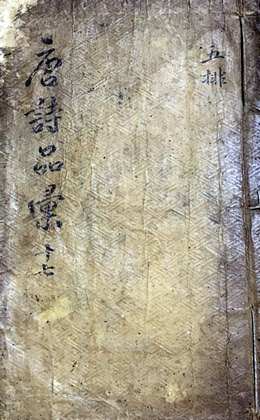 五排
唐詩品彙 十七